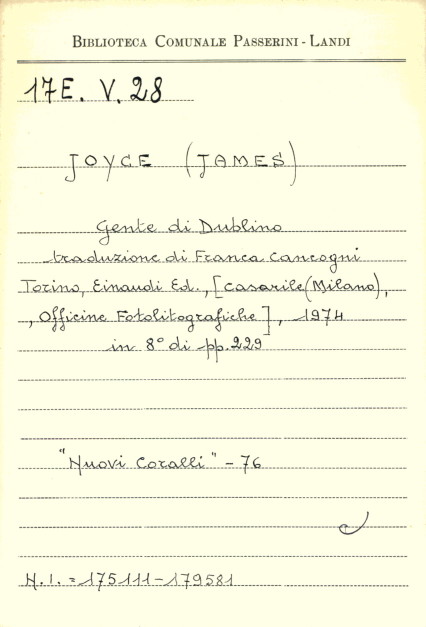 BIBLIOTECA COMUNALE PASSERINI - LANDI
17E. V. 28
JOYCE (JAMES)
Gente di Dublino
traduzione di Franca Cancogni
Torino, Einaudi Ed., [Casarile (Milano),
, Officine Fotolitografiche], 1974
in 8° di pp. 229
"Nuovi Coralli" - 76
N. I. = 175111-179581